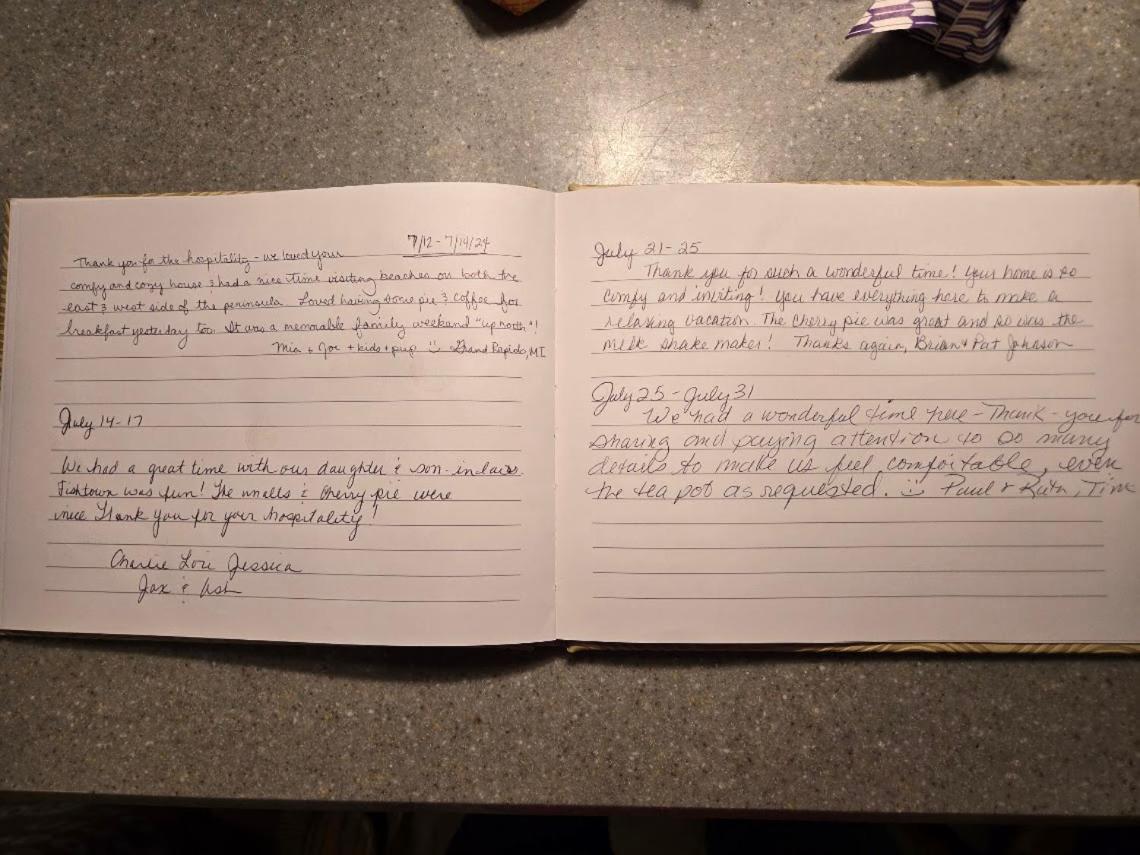 7/12 - 7/14/24
Thank you for the hospitality - we loved your
comfy and cozy house & had a nice time visiting beaches on both the
east & west side of the peninsula. Loved having some pie & coffee for
breakfast yesterday too. It was a memorable family weekend "up north"!
Mia + Joe + kids + pup :) Grand Rapids, MI
July 14-17
We had a great time with our daughter & son-in-laws.
Fishtown was fun! The malts & cherry pie were
nice Thank you for your hospitality!
Charlie Lori Jessica
Jax & Ash
July 21-25
Thank you for such a wonderful time! Your home is so
comfy and inviting! You have everything here to make a
relaxing vacation. The Cherry pie was great and so was the
milk shake maker! Thanks again, Brian & Pat Johnson
July 25 - July 31
We had a wonderful time here - Thank - you for
sharing and paying attention to so many
details to make us feel comfortable, even
the tea pot as requested. :) Paul & Ruth, Tim